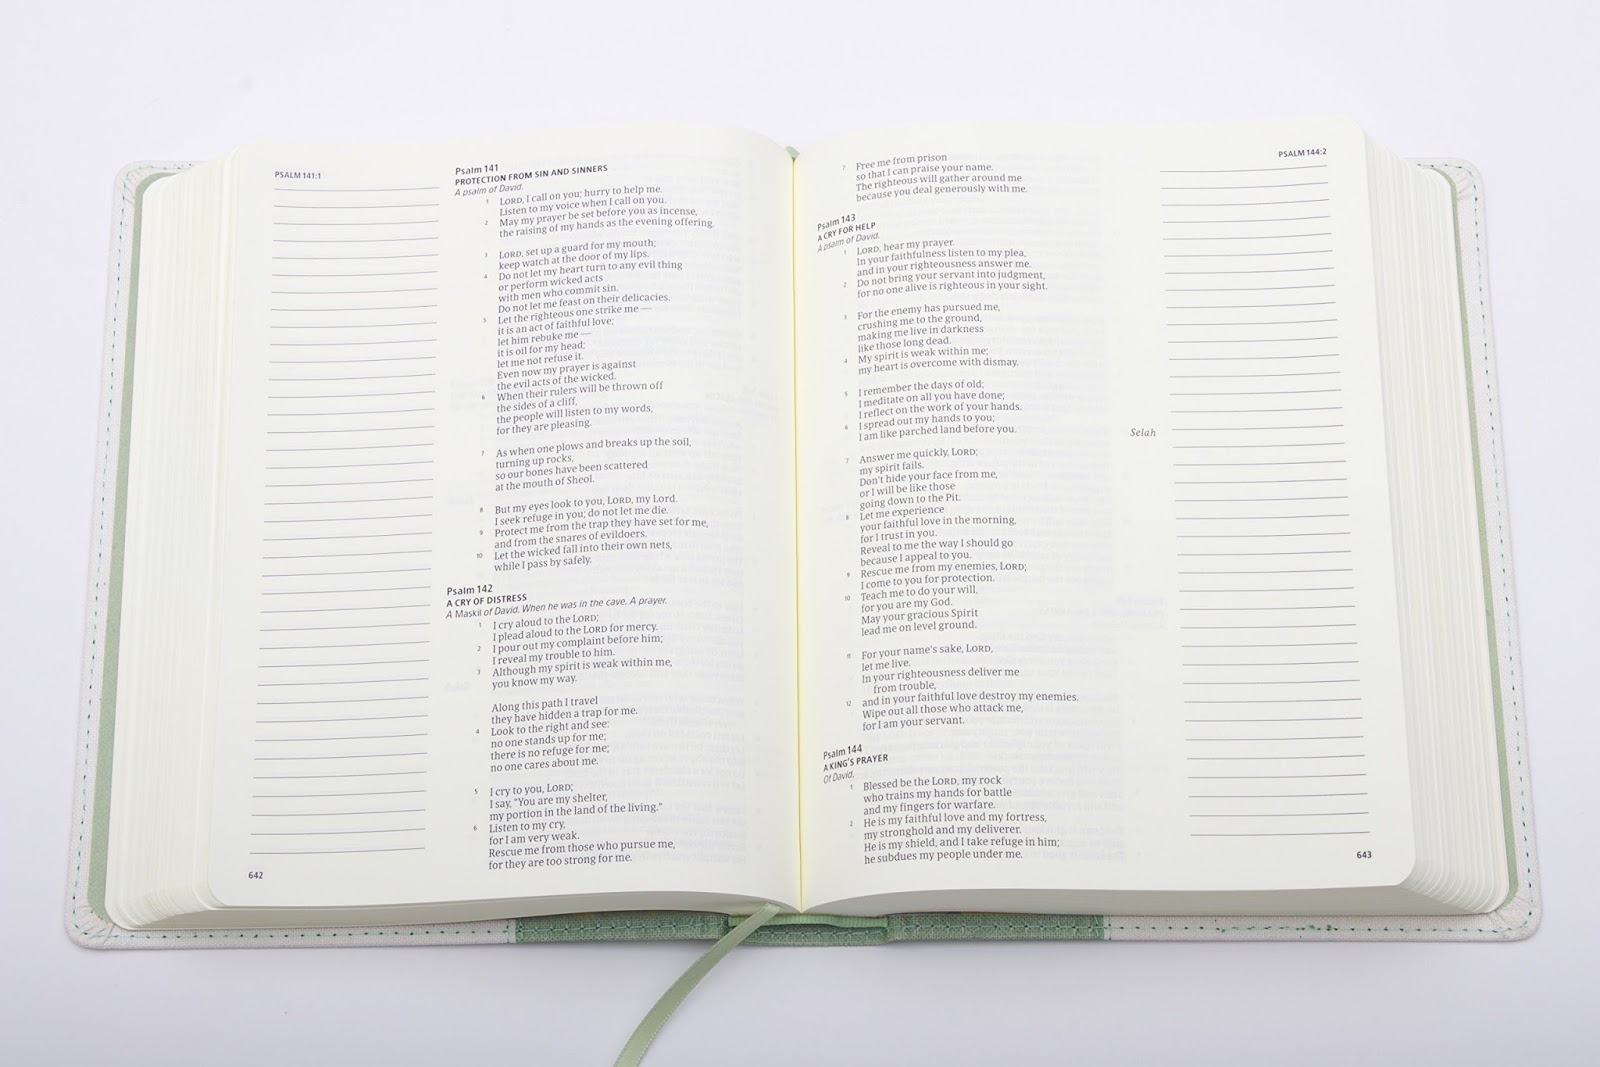 PSALM 141:1
Psalm 141
PROTECTION FROM SIN AND SINNERS
A psalm of David.
1 LORD, I call on you; hurry to help me.
Listen to my voice when I call on you.
2 May my prayer be set before you as incense,
the raising of my hands as the evening offering.
3 LORD, set up a guard for my mouth;
keep watch at the door of my lips.
4 Do not let my heart turn to any evil thing
or perform wicked acts
with men who commit sin.
Do not let me feast on their delicacies.
5 Let the righteous one strike me —
it is an act of faithful love;
let him rebuke me —
it is oil for my head;
let me not refuse it.
Even now my prayer is against
the evil acts of the wicked.
6 When their rulers will be thrown off
the sides of a cliff,
the people will listen to my words,
for they are pleasing.
7 As when one plows and breaks up the soil,
turning up rocks,
so our bones have been scattered
at the mouth of Sheol.
8 But my eyes look to you, LORD, my Lord.
I seek refuge in you; do not let me die.
9 Protect me from the trap they have set for me,
and from the snares of evildoers.
10 Let the wicked fall into their own nets,
while I pass by safely.
Psalm 142
A CRY OF DISTRESS
A Maskil of David. When he was in the cave. A prayer.
1 I cry aloud to the LORD;
I plead aloud to the LORD for mercy.
2 I pour out my complaint before him;
I reveal my trouble to him.
3 Although my spirit is weak within me,
you know my way.
Along this path I travel
they have hidden a trap for me.
4 Look to the right and see:
no one stands up for me;
there is no refuge for me;
no one cares about me.
5 I cry to you, LORD;
I say, "You are my shelter,
my portion in the land of the living."
6 Listen to my cry,
for I am very weak.
Rescue me from those who pursue me,
for they are too strong for me.
642
PSALM 144:2
7 Free me from prison
so that I can praise your name.
The righteous will gather around me
because you deal generously with me.
Psalm 143
A CRY FOR HELP
A psalm of David.
1 LORD, hear my prayer.
In your faithfulness listen to my plea,
and in your righteousness answer me.
2 Do not bring your servant into judgment,
for no one alive is righteous in your sight.
3 For the enemy has pursued me,
crushing me to the ground,
making me live in darkness
like those long dead.
4 My spirit is weak within me;
my heart is overcome with dismay.
5 I remember the days of old;
I meditate on all you have done;
I reflect on the work of your hands.
6 I spread out my hands to you;
I am like parched land before you. Selah
7 Answer me quickly, LORD;
my spirit fails.
Don't hide your face from me,
or I will be like those
going down to the Pit.
8 Let me experience
your faithful love in the morning,
for I trust in you.
Reveal to me the way I should go
because I appeal to you.
9 Rescue me from my enemies, LORD;
I come to you for protection.
10 Teach me to do your will,
for you are my God.
May your gracious Spirit
lead me on level ground.
11 For your name's sake, LORD,
let me live.
In your righteousness deliver me
from trouble,
12 and in your faithful love destroy my enemies.
Wipe out all those who attack me,
for I am your servant.
Psalm 144
A KING'S PRAYER
Of David.
1 Blessed be the LORD, my rock
who trains my hands for battle
and my fingers for warfare.
2 He is my faithful love and my fortress,
my stronghold and my deliverer.
He is my shield, and I take refuge in him;
he subdues my people under me.
643